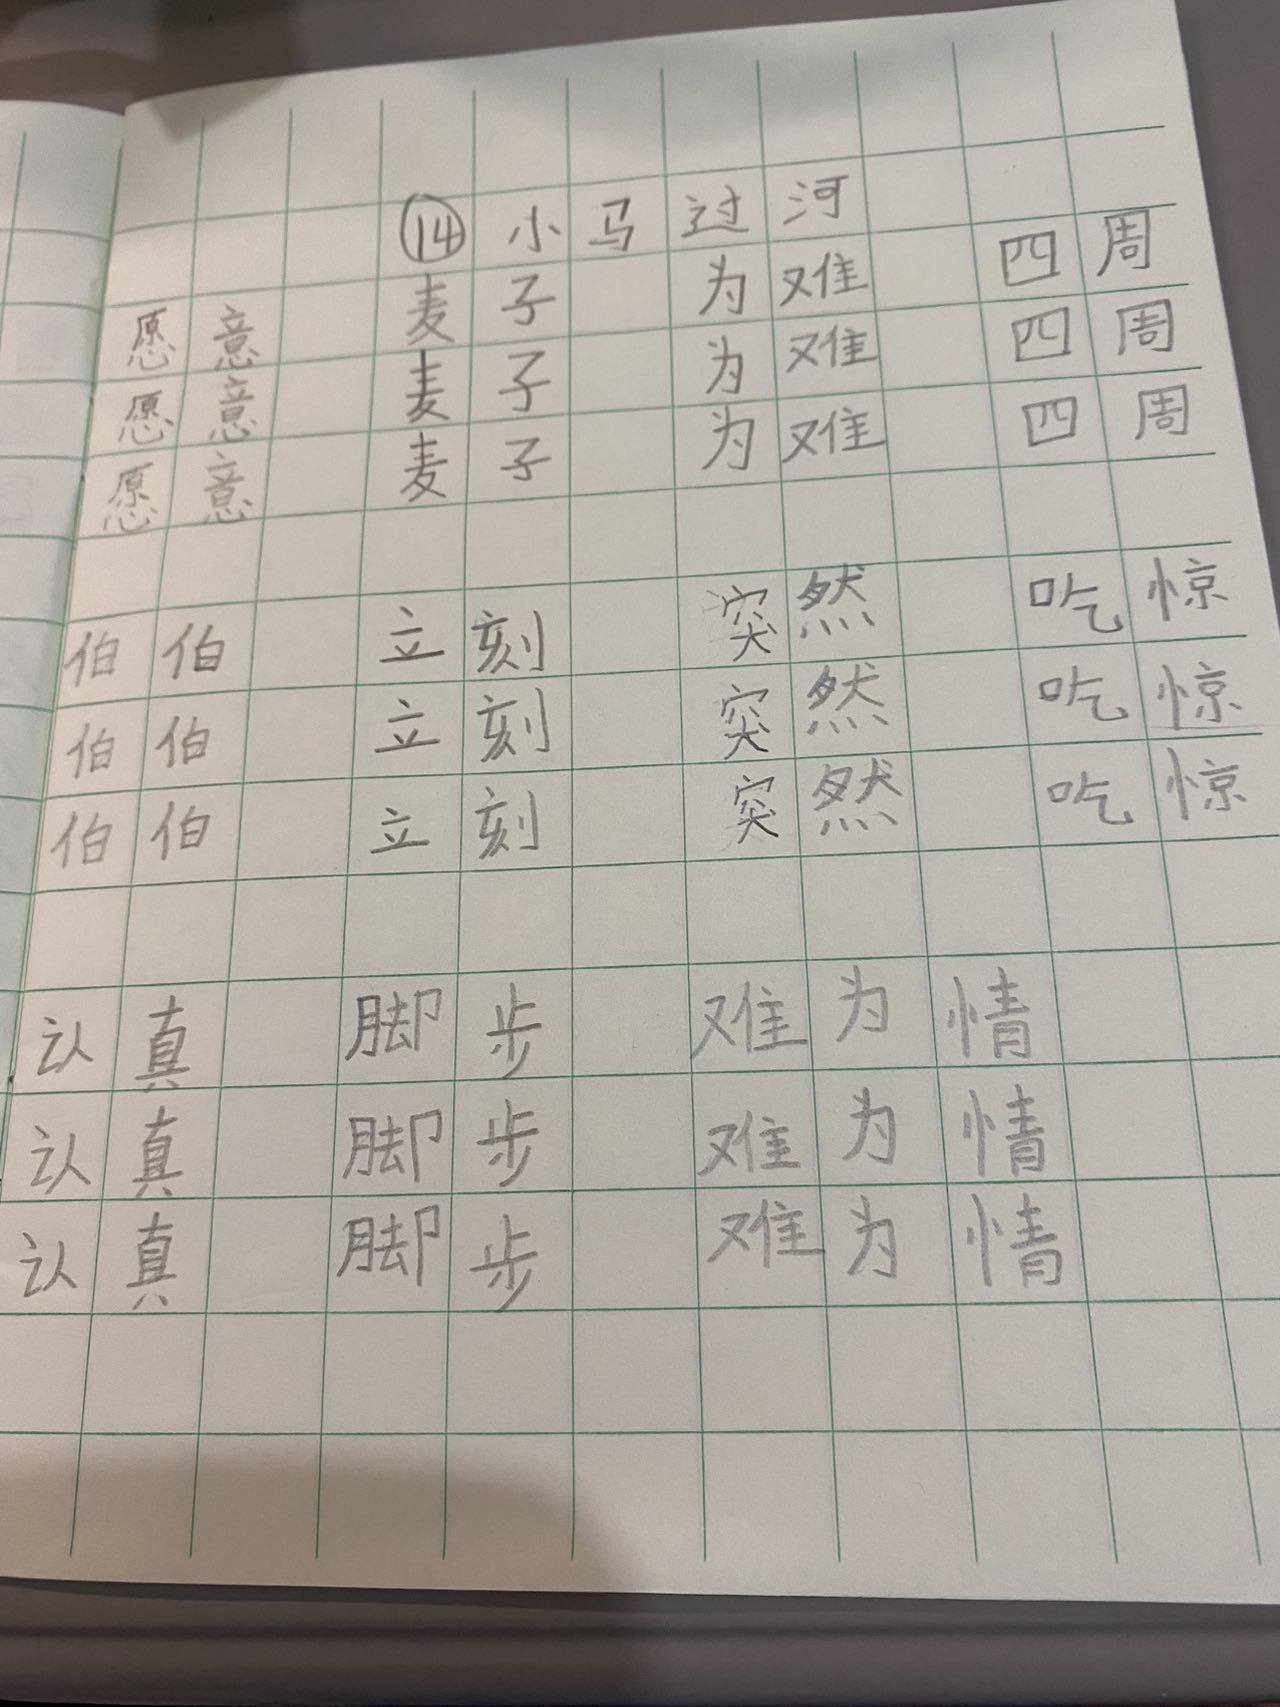 ⑭ 小马过河
愿意 麦子 为难 四周
愿意 麦子 为难 四周
愿意 麦子 为难 四周
伯伯 立刻 突然 吃惊
伯伯 立刻 突然 吃惊
伯伯 立刻 突然 吃惊
认真 脚步 难为情
认真 脚步 难为情
认真 脚步 难为情